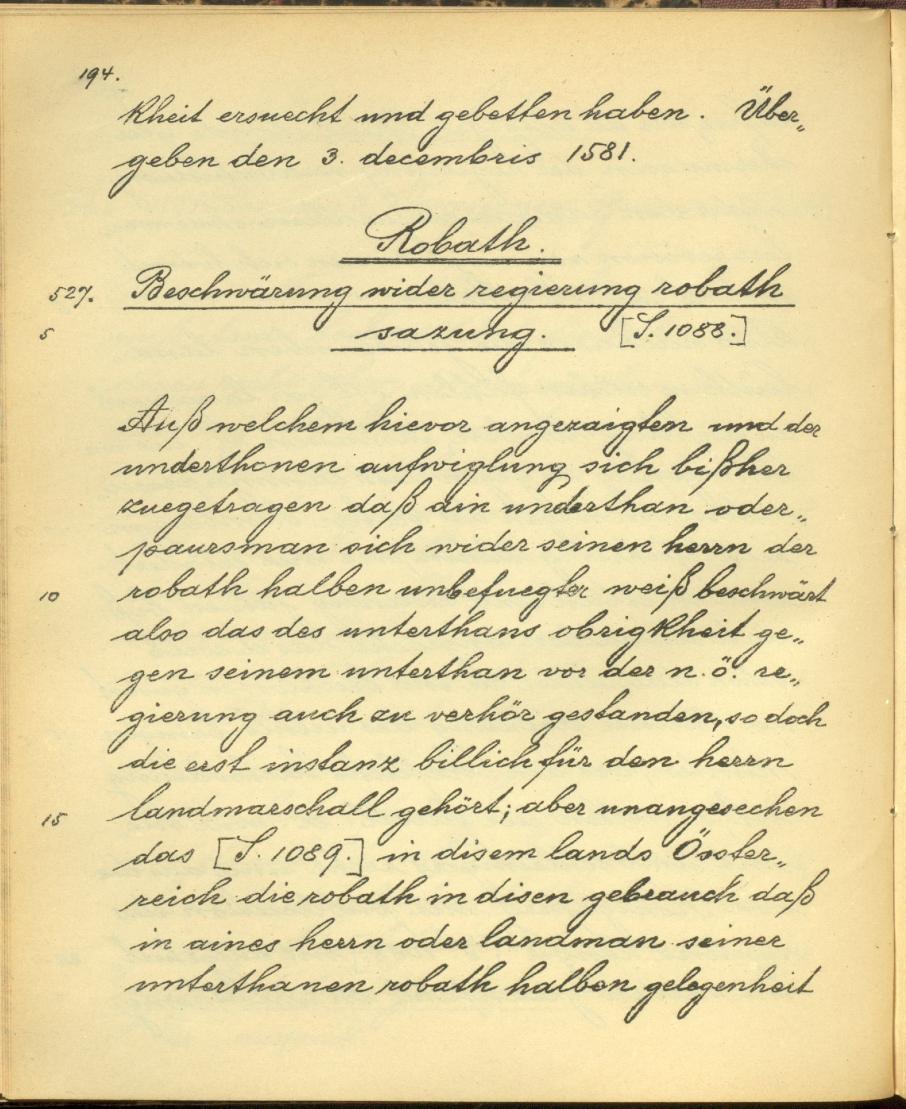 194.
kheit ersuecht und gebetten haben. Über„
geben den 3. decembris 1581.
Robath.
527. Beschwärung wider regierung robath
5 sazung. [S. 1088.]
Auß welchem hievor angezaigten und der
underthonen aufwiglung sich bißher
zuegetragen daß ain underthan oder„
paursman sich wider seinen herrn der
10 robath halben unbefuegter weiß beschwärt
also das des unterthans obrigkheit ge„
gen seinem unterthan vor der n. ö. re„
gierung auch zu verhör gestanden, so doch
die erst instanz billich für den herrn
15 landmarschall gehört; aber unangesechen
das [S. 1089.] in disem landsÖsster„
reich die robath in disen gebrauch daß
in aines herrn oder landman seiner
unterthanen robath halben gelegenheit